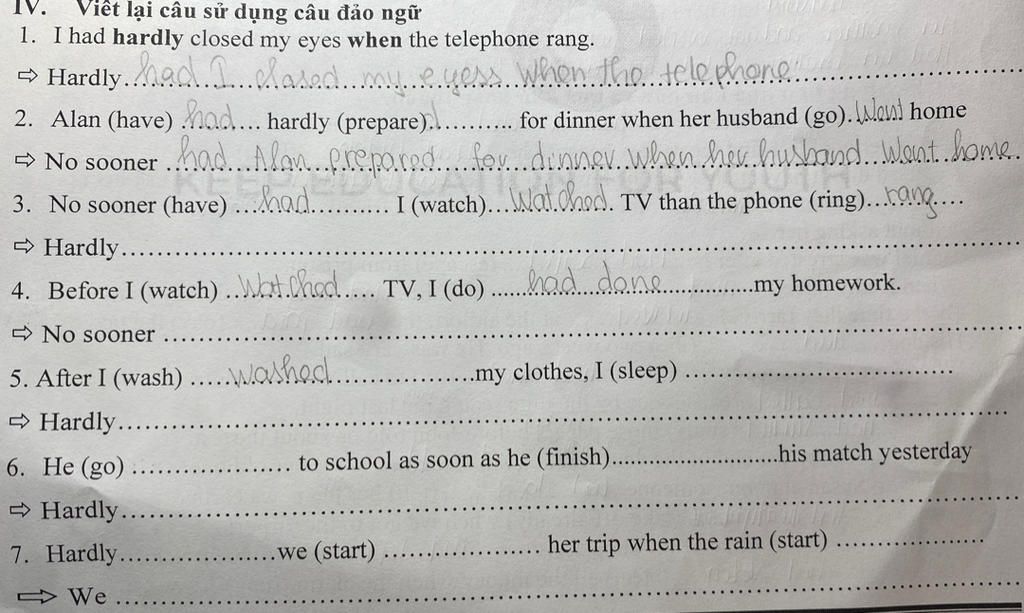 IV. Viết lại câu sử dụng câu đảo ngữ
1. I had hardly closed my eyes when the telephone rang.
⇨ Hardly...had I closed my eyess when the telephone...
2. Alan (have) .had.... hardly (prepare)d.......... for dinner when her husband (go). Want home
⇨ No sooner ..had Alan prepared for dinner when her husband Want home.
KEEP EDUCATION FOR YOUTH
3. No sooner (have) ...had.......... I (watch)...Watched. TV than the phone (ring)..rang....
⇨ Hardly........................................
4. Before I (watch) ..Watched..... TV, I (do) ......had done..............my homework.
⇨ No sooner ........................................
5. After I (wash) .....washed..................my clothes, I (sleep) ..............................
⇨ Hardly........................................
6. He (go) .................. to school as soon as he (finish)........................his match yesterday
⇨ Hardly........................................
7. Hardly...................we (start) .................. her trip when the rain (start) .................
⇨ We ........................................